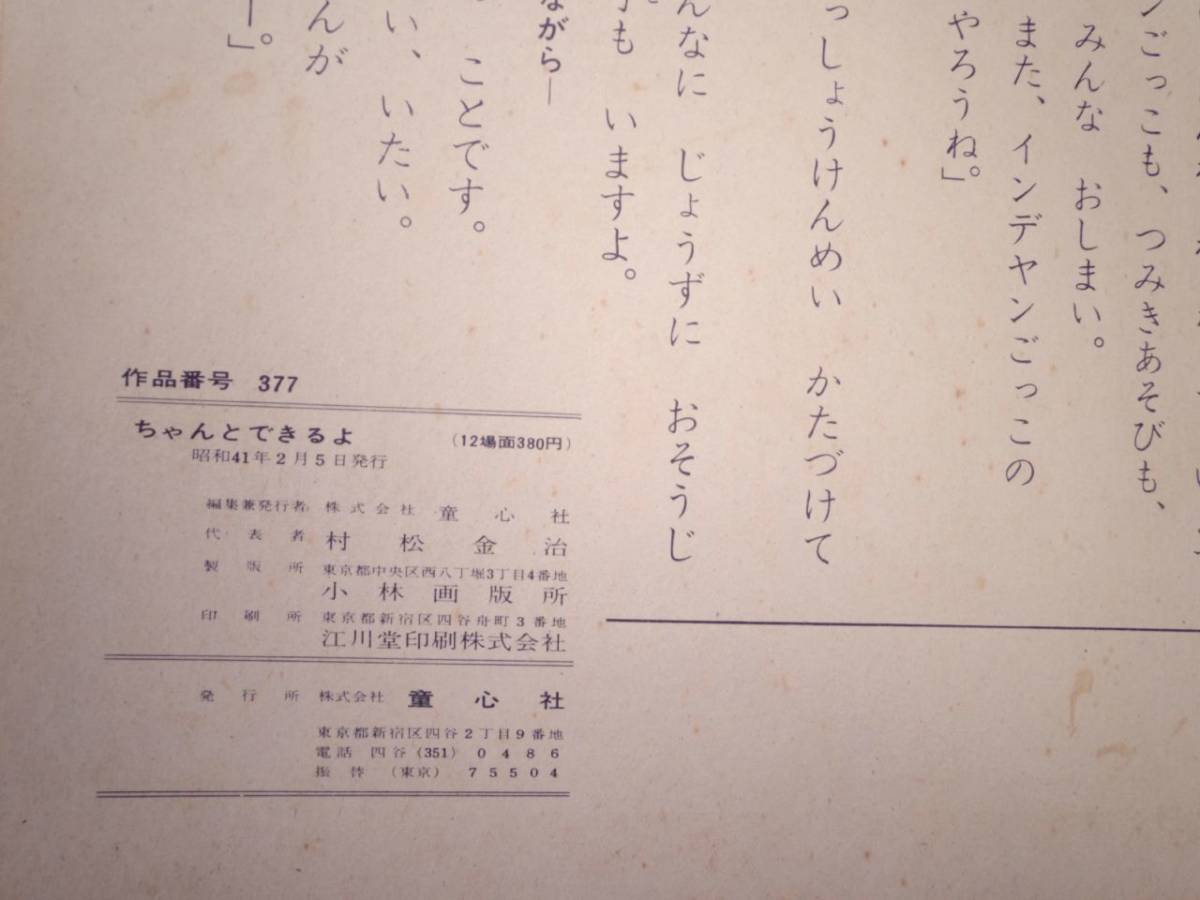 ンごっこも、つみきあそびも、
みんな おしまい。
また、インデヤンごっこの
やろうね」。
っしょうけんめい かたづけて
んなに じょうずに おそうじ
も いますよ。
ながら―
ことです。
い、いたい。
んが
ー」。
作品番号 377
ちゃんとできるよ (12場面380円)
昭和41年2月5日発行
編集兼発行者 株式会社 童心社
代表者 村松金治
製版所 東京都中央区西八丁堀3丁目4番地
小林画版所
印刷所 東京都新宿区四谷舟町3番地
江川堂印刷株式会社
発行所 株式会社 童心社
東京都新宿区四谷2丁目9番地
電話 四谷(351)0486
振替 (東京)75504